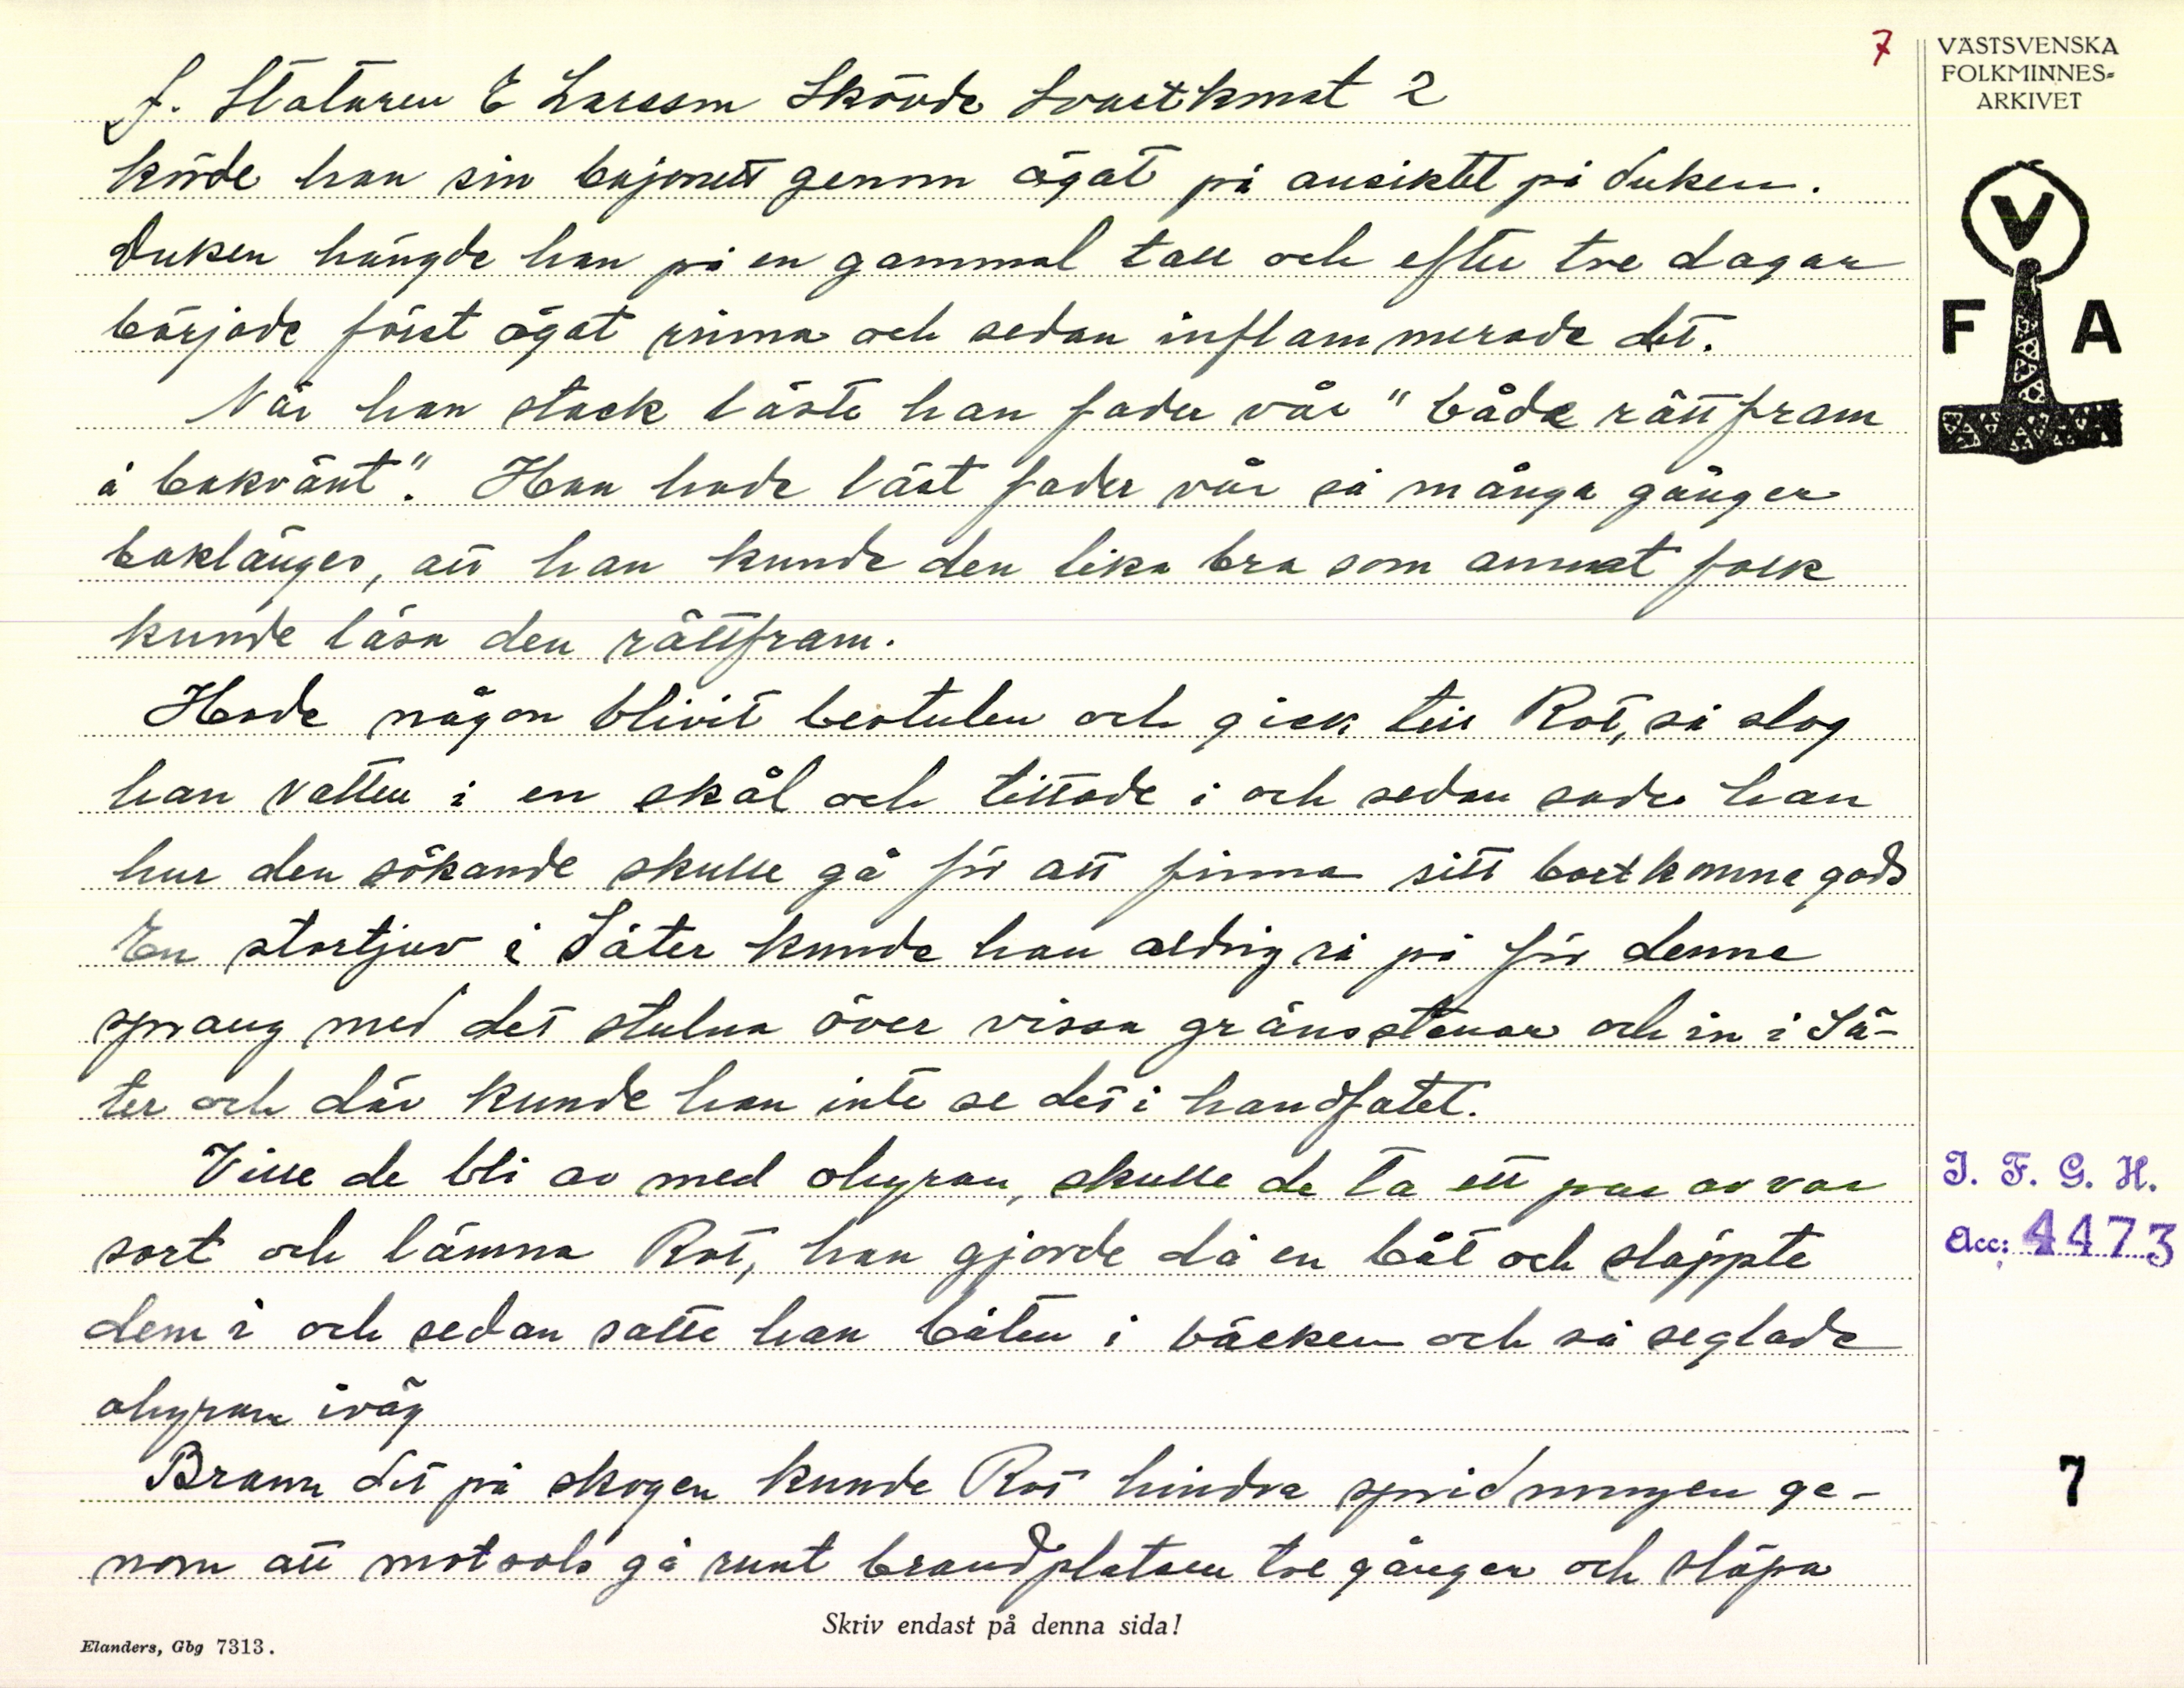 7
VÄSTSVENSKA
FOLKMINNES-
ARKIVET
f. Stataren E Larsson Skövde Svartkonst 2
körde han sin bajonett genom ögat på ansiktet på duken.
Duken hängde han på en gammal tall och efter tre dagar
började först ögat rinna och sedan inflammerade det.
När han stack läste han fader vår "både rättfram
å bakvänt". Han hade läst fader vår så många gånger
baklänges, att han kunde den lika bra som annat folk
kunde läsa den rättfram.
Hade någon blivit bestulen och gick till Rot, så slog
han vatten i en skål och tittade i och sedan sade han
hur den sökande skulle gå för att finna sitt bortkomna gods
En stortjuv i Säter kunde han aldrig rå på för denne
sprang med det stulna över vissa gränsstenar och in i Sä-
ter och där kunde han inte se det i handfatet.
Ville de bli av med ohyran, skulle de ta ett par av var
sort och lämna Rot, han gjorde då en båt och släppte
dem i och sedan satte han båten i bäcken och så seglade
ohyran iväg
Brann det på skogen kunde Rot hindra spridningen ge-
nom att motsols gå runt brandplatsen tre gånger och släpa
V
F A
I. F. G. H.
Acc: 4473
7
Skriv endast på denna sida!
Elanders, Gbg 7313.